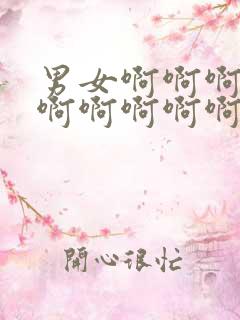 男女啊啊啊
啊啊啊啊啊
開心很忙